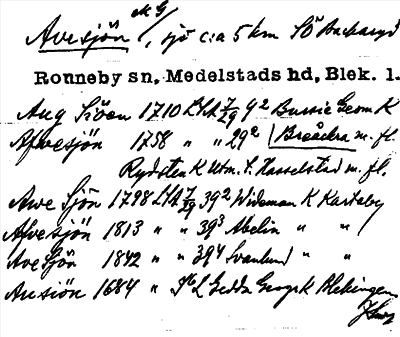 Avesjön, sjö c:a 5 km SÖ Backaryd
Ronneby sn, Medelstads hd, Blek. l.
Aug Siöen 1710 LSA 7/29 9² Geom K
Afvesjön 1758 " " 29² Bredåkra m. fl.
Rydsten K Utm. t. Hasselstad m. fl.
Awe Sjön 1798 LSA 7/29 39² Wideman K Karteby
Afvesjön 1813 " " 39³ Abelin " "
Ave Sjön 1842 " " 39⁴ Svanlund " "
Ausiön 1684 " Gedda K Blekingen